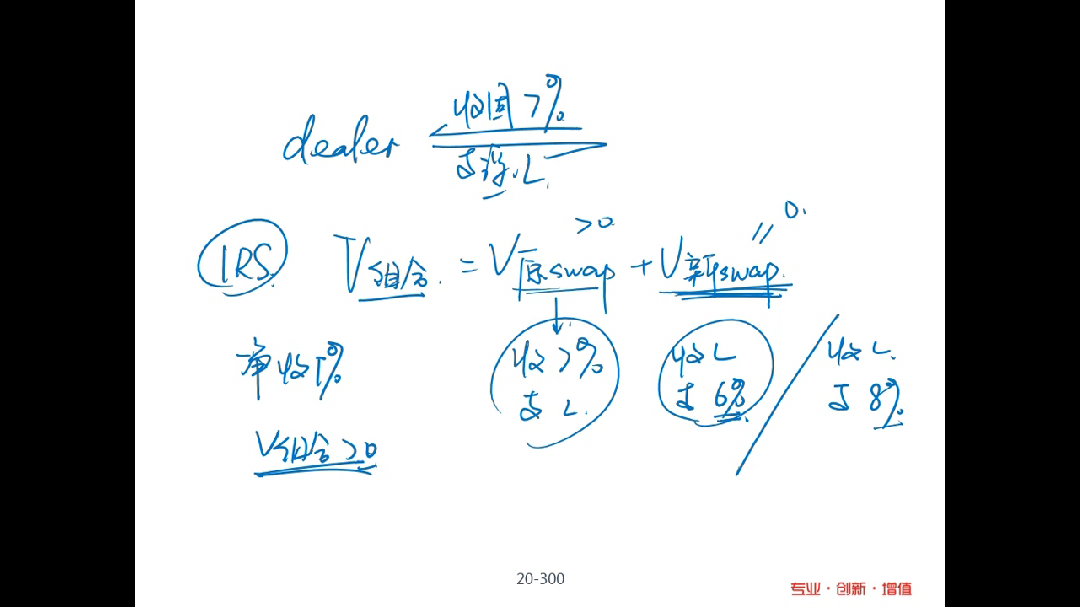 dealer 收固 7%
支浮.L
IRS. V组合. = V原swap + V新swap.
>0 = 0.
净收1% 收7% 收L 收L.
支L. 支6% 支8%.
V组合>0
20-300
专业·创新·增值